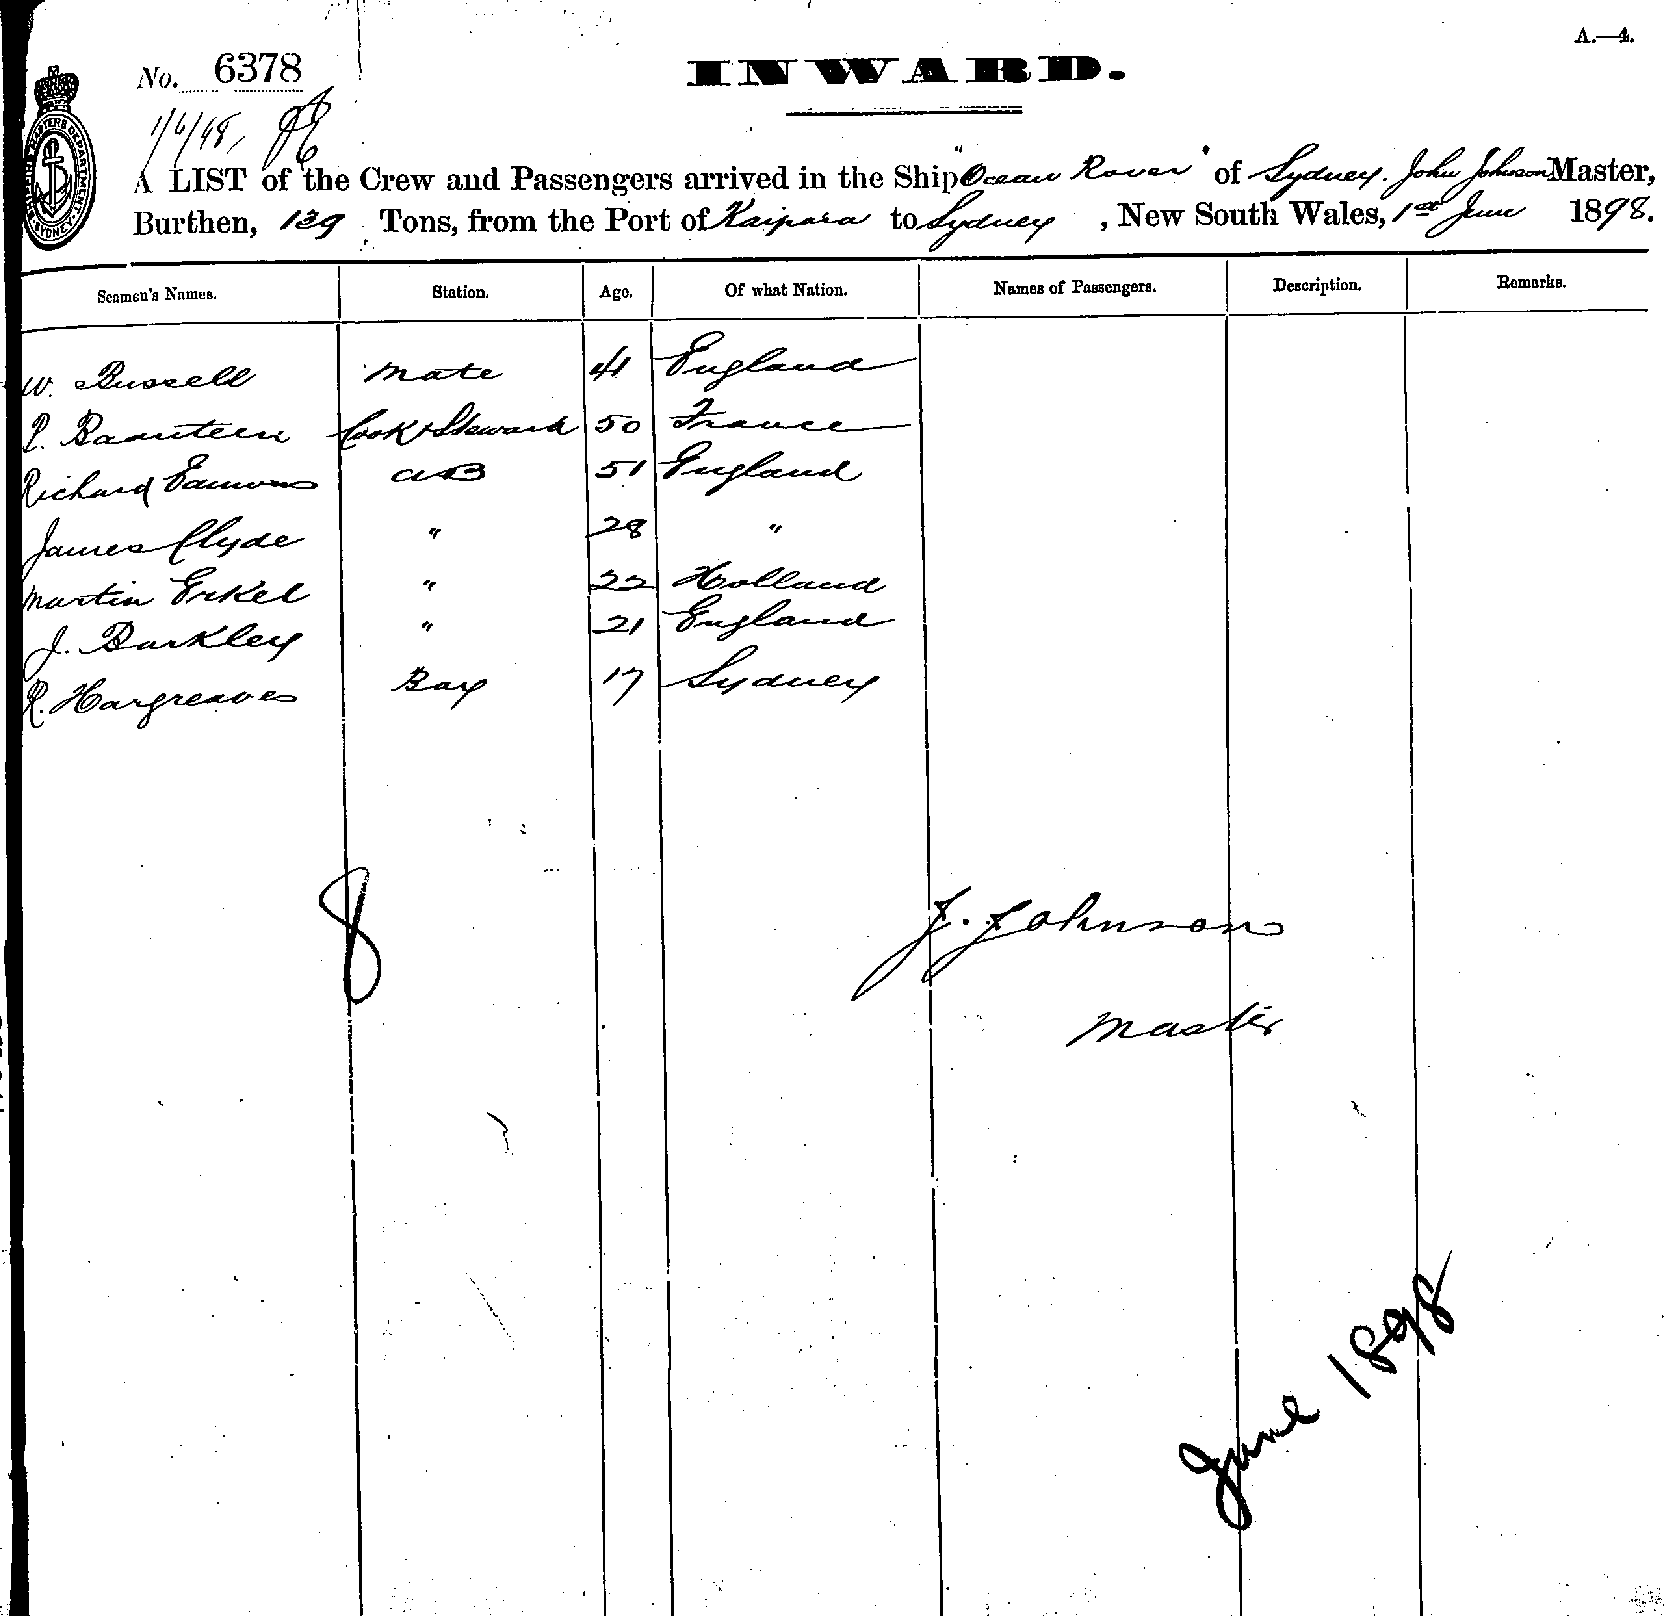 A.—4.
No. 6378
INWARD.
1/6/98,
A LIST of the Crew and Passengers arrived in the Ship "Ocean Rover" of Sydney. John Johnson Master,
Burthen, 139 Tons, from the Port of Kaipara to Sydney, New South Wales, 1st June 1898.
Seamen's Names. Station. Age. Of what Nation. Names of Passengers. Description. Remarks.
W. Russell Mate 41 England
P. Cook & Steward 50 France
Richard AB 51 England
James Clyde " 28 "
Martin Erkel " 22 Holland
J. Barkley " 21 England
R. Hargreaves Boy 17 Sydney
8
J. Johnson
Master
June 1898